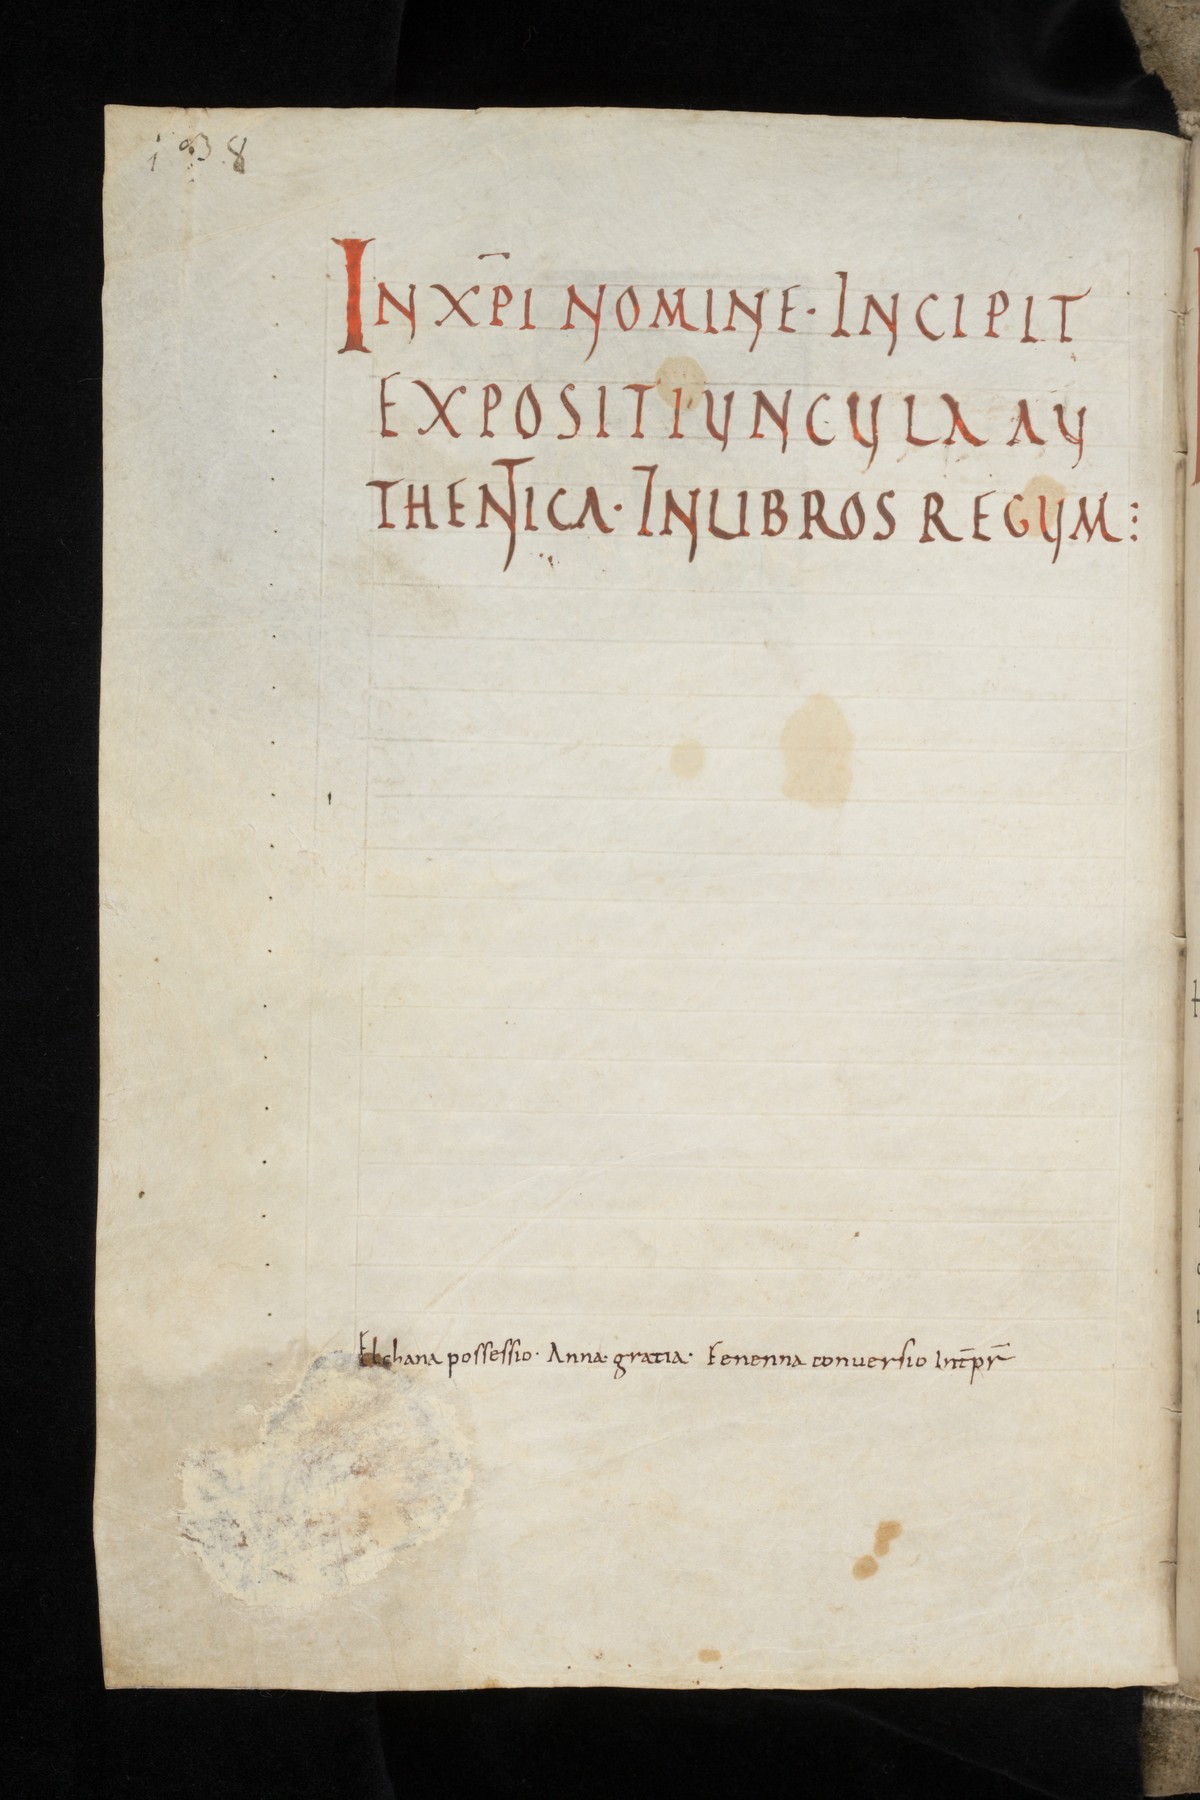 1038
IN XP̄I NOMINE· INCIPIT
EXPOSITIUNCULA AU
THENTICA· IN LIBROS REGUM:
Elchana possessio· Anna· gratia· Fenenna conuersio Int̄pr̄